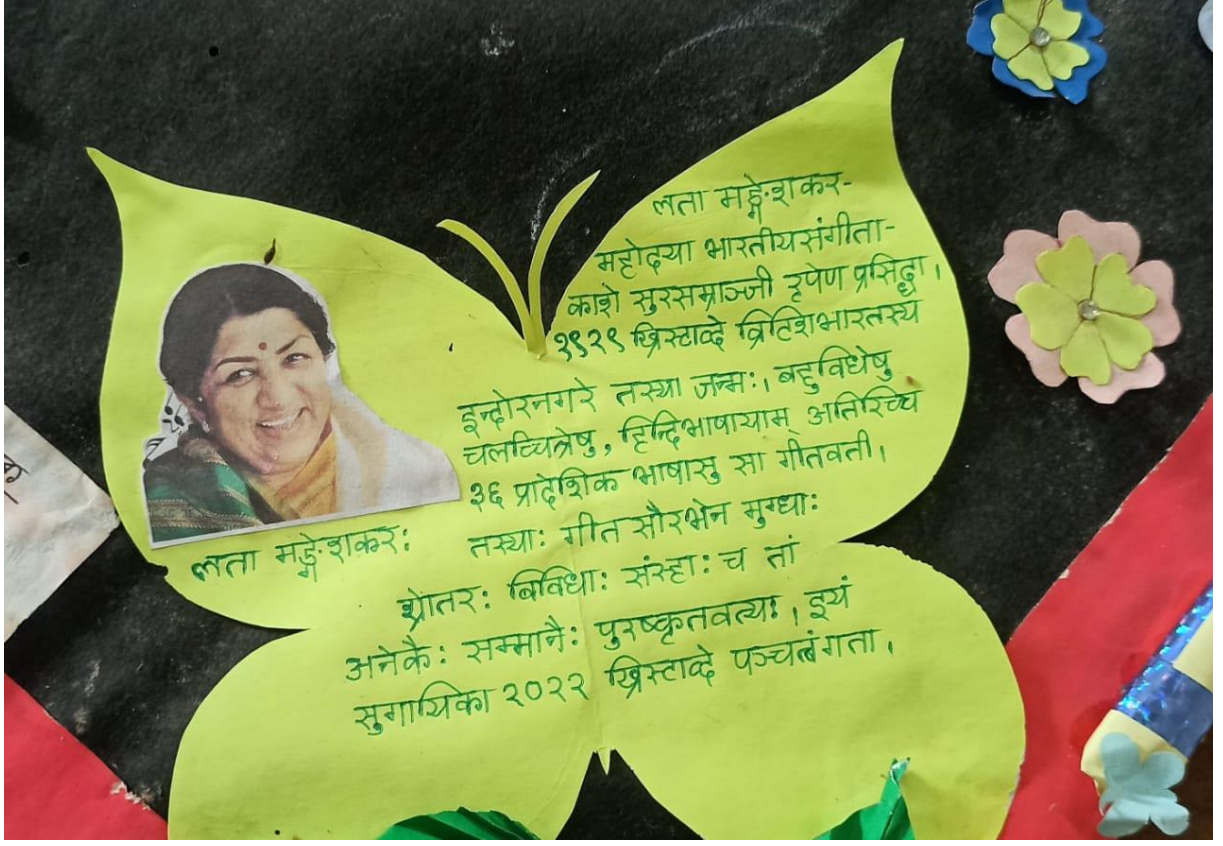 लता मङ्गेशकर-
महोदया भारतीयसंगीता-
काशे सुरसम्राञ्जी रूपेण प्रसिद्धा।
१९२९ ख्रिस्टाब्दे ब्रिटिशभारतस्य
इन्दोरनगरे तस्या जन्मः। बहुविधेषु
चलच्चित्रेषु, हिन्दिभाषायाम् अतिरिच्य
३६ प्रादेशिक भाषासु सा गीतवती।
लता मङ्गेशकरः
तस्याः गीत सौरभेन मुग्धाः
श्रोतरः बिविधाः संस्हाः च तां
अनेकैः सम्मानैः पुरष्कृतवत्यः। इयं
सुगायिका २०२२ ख्रिस्टाब्दे पञ्चत्बंगता।